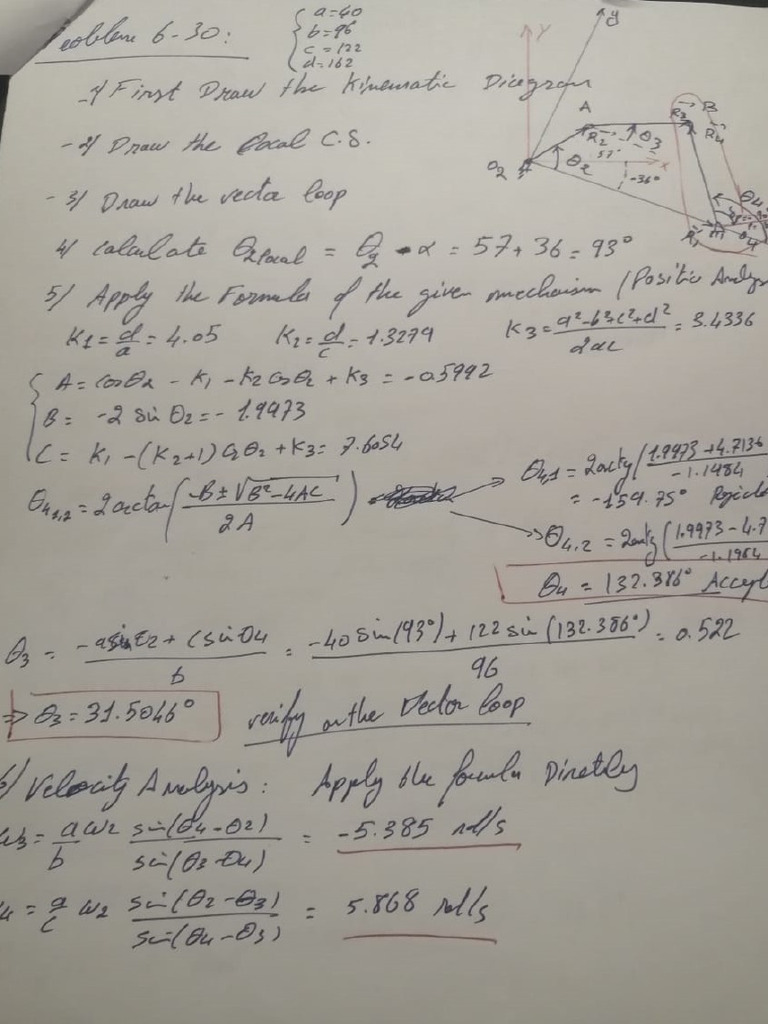 Problem 6-30:
a=40
b=96
c=122
d=162
-1/ First Draw the Kinematic Diagram
-2/ Draw the Local C.S.
-3/ Draw the vector loop
4/ Calculate θ2local = θ2 - α = 57+36 = 93°
5/ Apply the Formula of the given mechaism (Positio Analys
K1 = d/a = 4.05 K2 = d/c = 1.3279 K3 = (a²-b²+c²+d²)/2ac = 3.4336
A = cosθ2 - K1 - K2 cosθ2 + K3 = -0.5992
B = -2 sin θ2 = -1.9973
C = K1 - (K2+1) cosθ2 + K3 = 7.6054
θ41,2 = 2arctan((-B±√(B²-4AC))/2A)
θ4,1 = 2arctg(1.9973+4.7136/-1.1984
= -159.75° Rejecte
θ4,2 = 2arctg(1.9973-4.7/-1.1984
θ4 = 132.386° Accept
θ3 = (-a sin θ2 + c sin θ4)/b = (-40 sin(93°) + 122 sin(132.386°))/96 = 0.522
⇒ θ3 = 31.5046° verify on the Vector loop
6/ Velocity Analysis: Apply the formula Directly
ω3 = a/b ω2 sin(θ4-θ2)/sin(θ3-θ4) = -5.385 rad/s
4 = a/c ω2 sin(θ2-θ3)/sin(θ4-θ3) = 5.868 rad/s
Y
y
A
B
R2
R3
R4
R1
θ3
θ2
57°
x
-36°
O2
θ4